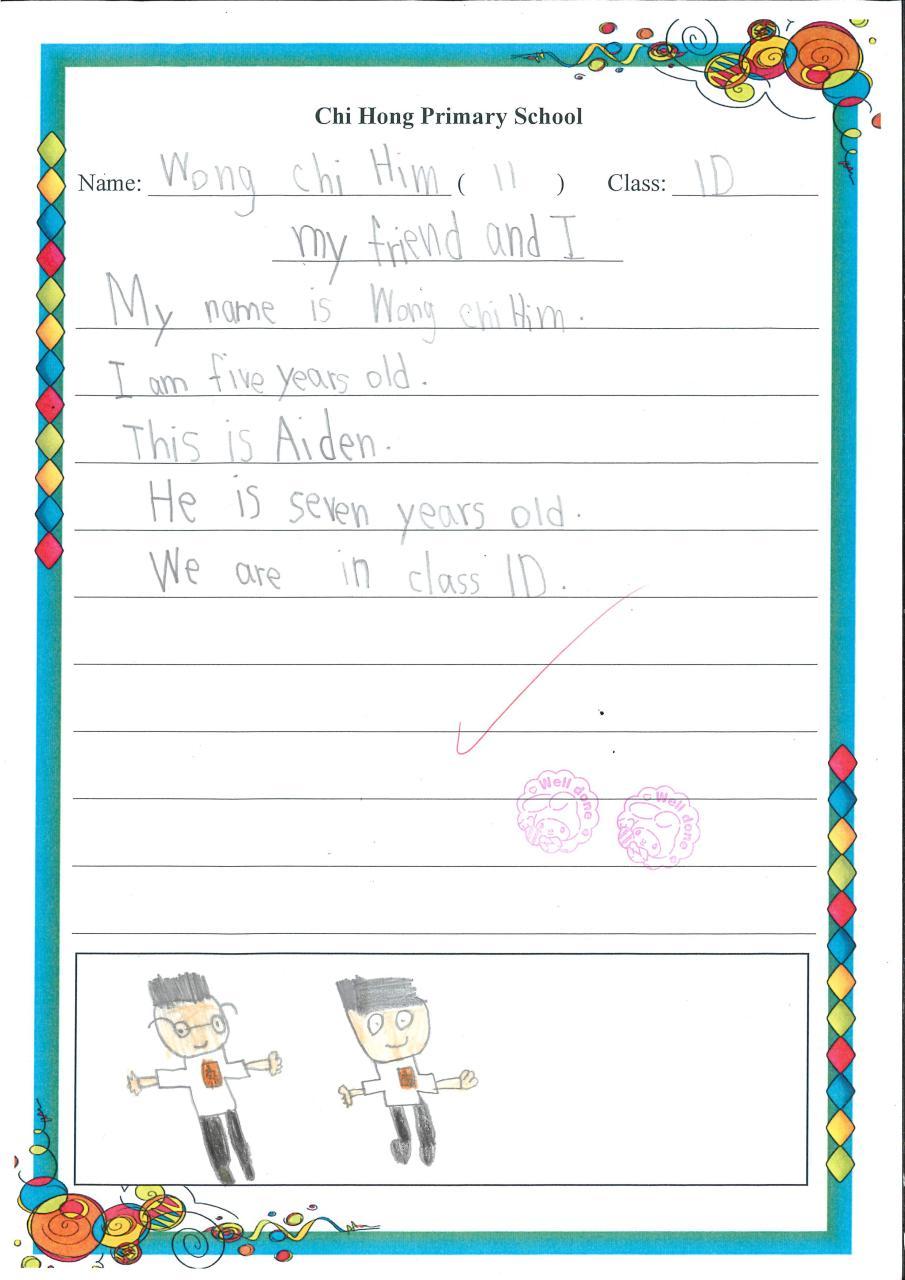 Chi Hong Primary School
Name: Wong chi Him ( 11 ) Class: 1D
my friend and I
My name is Wong chi Him.
I am five years old.
This is Aiden.
He is seven years old.
We are in class 1D.
Well done
Well done